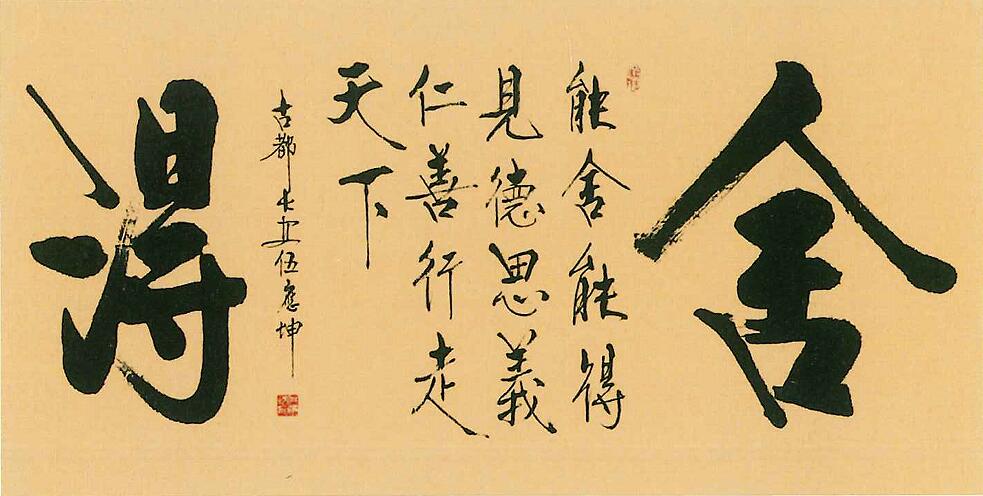 舍
能舍能得
見德思義
仁善行走
天下
古都长安伍應坤
得